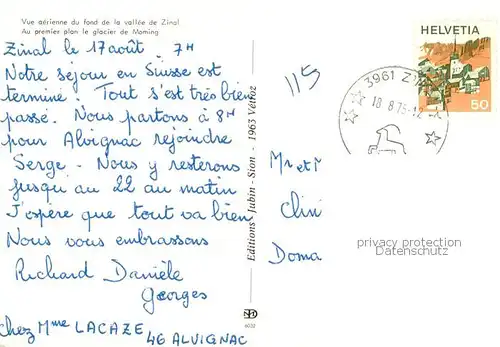 Vue aérienne du fond de la vallée de Zinal
Au premier plan le glacier de Moming
Zinal le 17 août 7H
Notre séjour en Suisse est
terminé. Tout s'est très bien
passé. Nous partons à 8H
pour Alvignac rejoindre
Serge. Nous y resterons
jusqu'au 22 au matin
J'espère que tout va bien
Nous vous embrassons
Richard Danièle
Georges
chez Mme LACAZE
46 ALVIGNAC
Editions Jubin - Sion - 1963 Vétroz
115
HELVETIA
50
3961 Z
18.8.75-12
Mr et M
Clini
Doma
privacy protection
Datenschutz